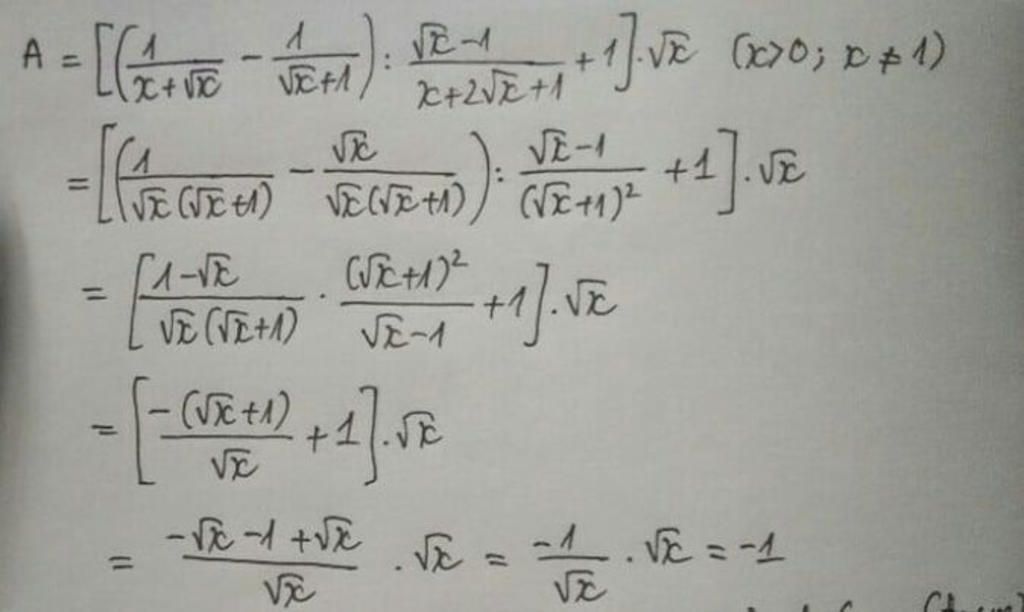 A = [(1/(x+√x) − 1/(√x+1)) : (√x−1)/(x+2√x+1) + 1].√x (x>0; x ≠ 1)
= [(1/(√x(√x+1)) − √x/(√x(√x+1))) : (√x−1)/(√x+1)² + 1].√x
= [(1−√x)/(√x(√x+1)) . (√x+1)²/(√x−1) + 1].√x
= [−(√x+1)/√x + 1].√x
= (−√x −1 +√x)/√x . √x = −1/√x . √x = −1